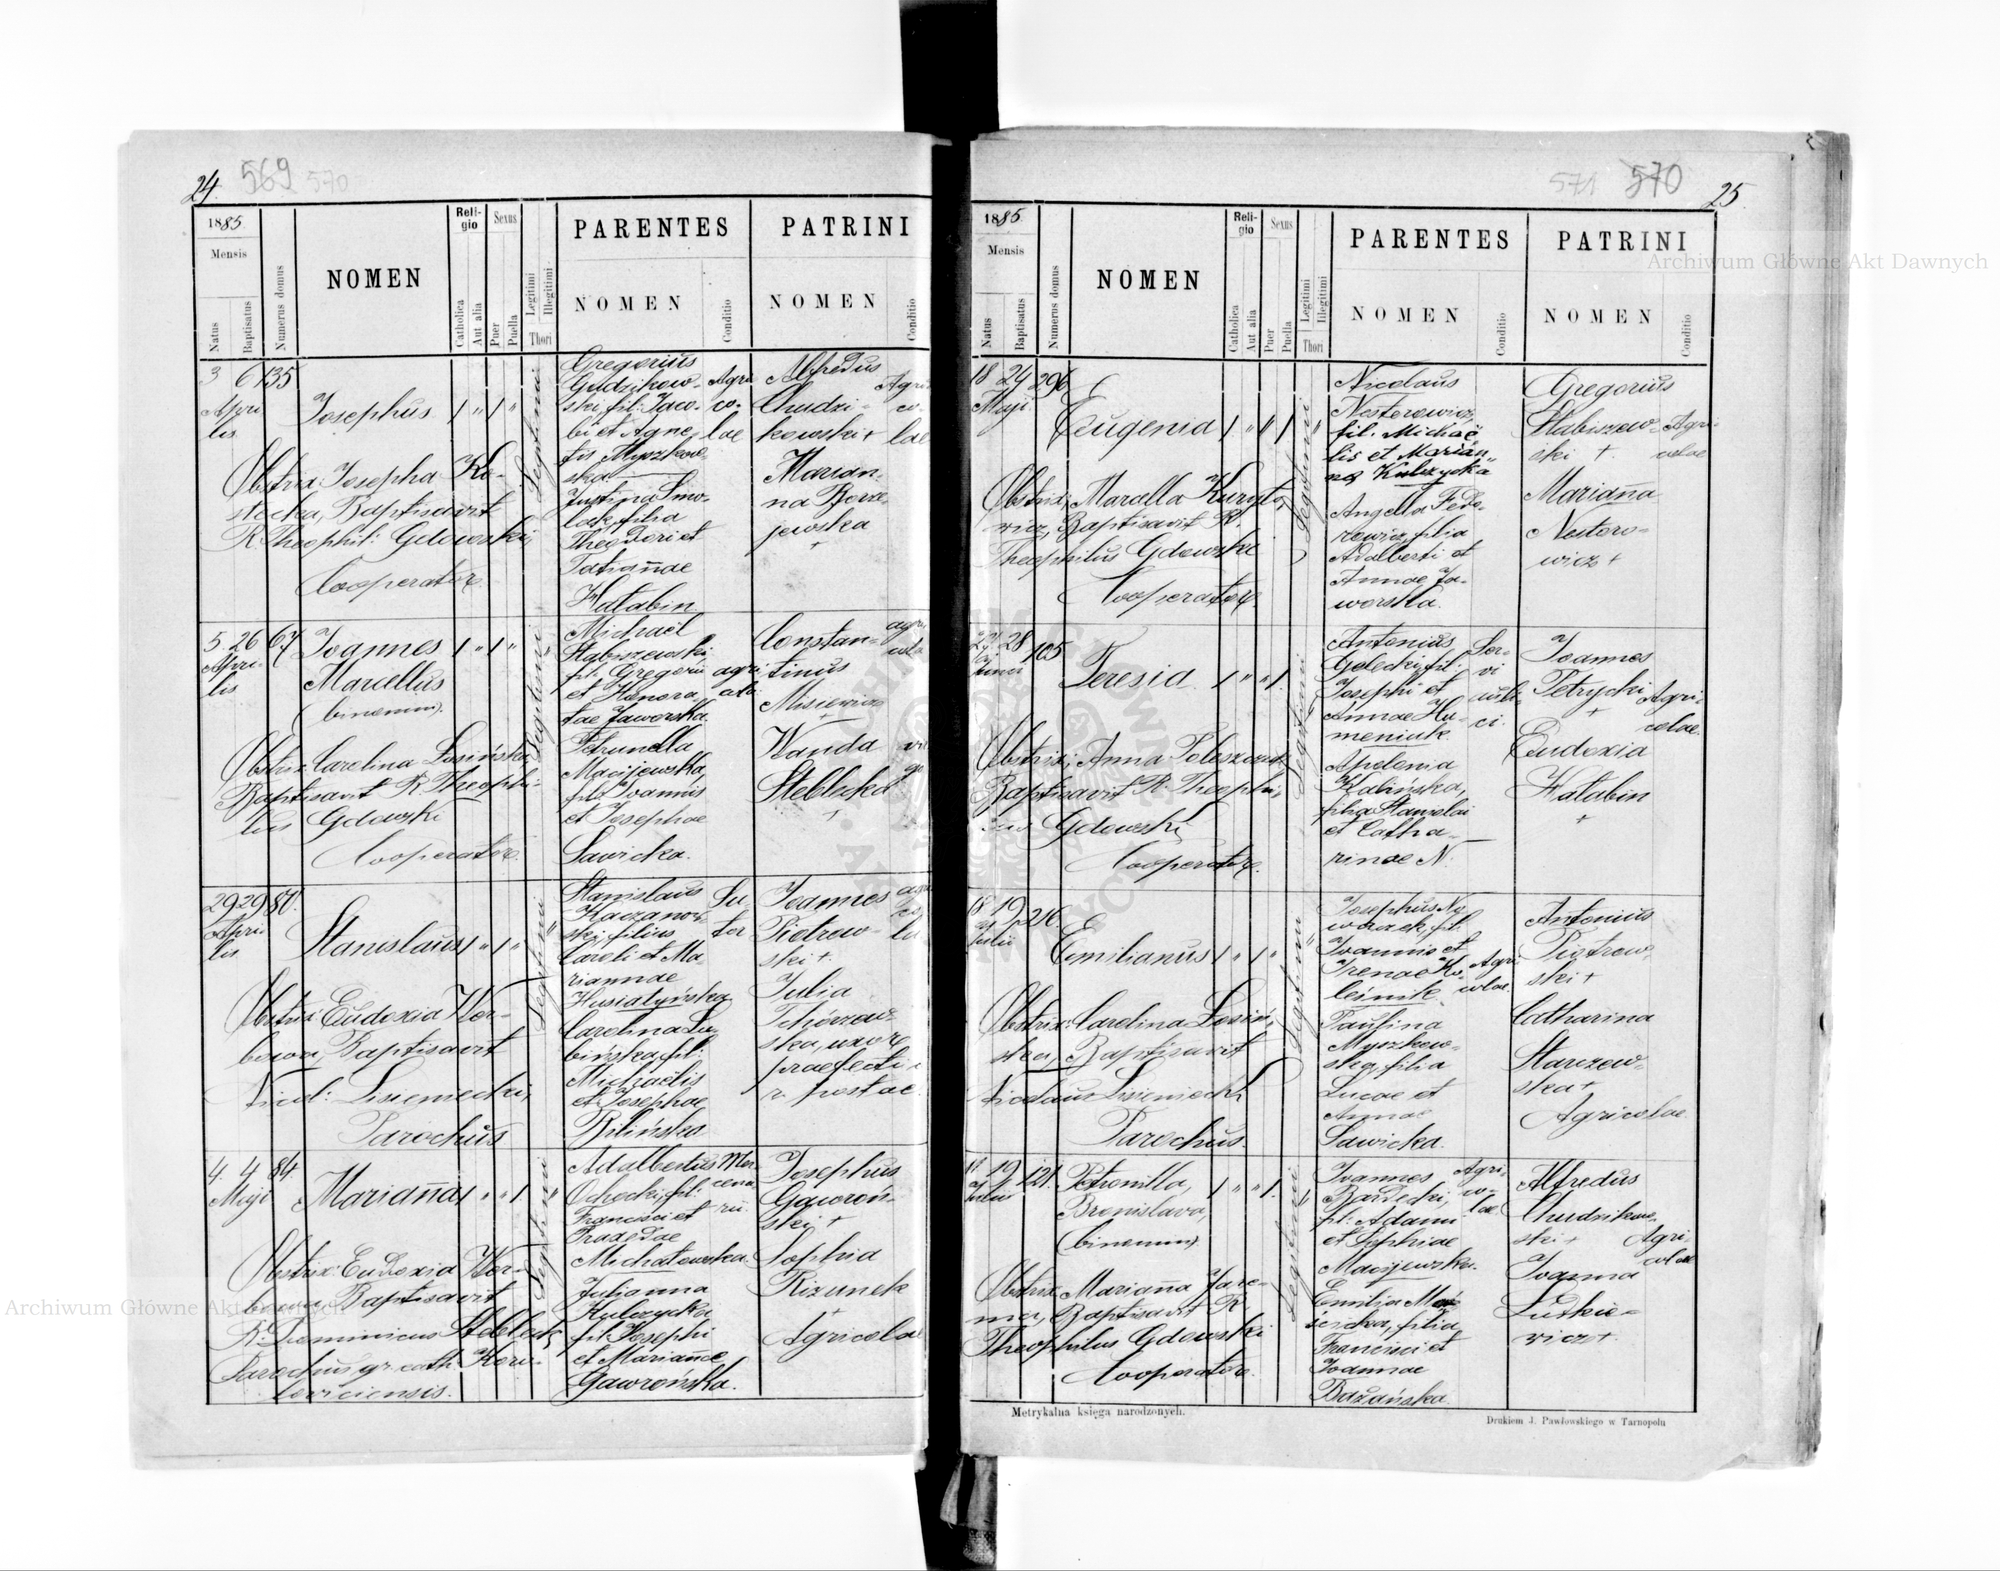 24. 569 570
1885
Mensis
Natus
Baptisatus
Numerus domus
NOMEN
Religio
Catholica
Aut alia
Sexus
Puer
Puella
Legitimi
Illegitimi
Thori
PARENTES
NOMEN
Conditio
PATRINI
NOMEN
Conditio
3 6 135
Apri
lis
Josephus
Obstrix: Josepha Ko-
stecka, Baptisavit
R. Theophil: Gdowski,
Cooperator
Legitimi
Gregorius
ski, fil: Jaco-
bi et Agne
tis Myszkow-
ska
Justina Smo-
lak, filia
Theodori et
Tatiannae
Hałabin
Agri
co-
lae
Alfredus
Chudzi-
kowski +
Marian-
na
jewska
+
Agri
co-
lae
5 26 67
Apri-
lis
Joannes
Marcellus
(binomin).
Obstrix: Carolina Łosińska,
Baptisavit R. Theophi-
lus Gdowski
Cooperator.
Legitimi
Michaël
Stabiszewski,
fil. Gregorii
et Honora
tae Jaworska.
Petrunella
Macijewska,
filia Joannis
et Josephae
Sawicka.
Constan-
tinus
Misiewicz
+
Wanda
Steblecka
+
29 29 80.
Apri
lis
Stanislaus
Obstrix: Eudoxia Wer-
bowa, Baptisavit
Nicol: Lisieniecki,
Parochus
Legitimi
Stanislaus
Kaczanow-
ski, filius
Caroli et Ma-
riannae
Husiatyńska
Carolina Lu
bińska, fil:
Michaëlis
et Josephae
Bilińska
Su
tor
Joannes
Pietrow-
ski +.
Julia
Tchórzew-
ska, uxor
praefecti
r. postae.
4. 4 84.
Maji
Marianna
Obstrix: Eudoxia Wer-
bowa Baptisavit
R. Dominicus Steblecki,
Parochus gr. cath.
Legitimi
Adalbertus
Ochocki, fil:
Francisci et
Michałowska.
Julianna
Kulczycka,
fil. Josephi
et Mariannae
Gawrońska.
Mer-
cena
rii.
Josephus
Gawroń-
ski +
Sophia
Rizunek
+
Agricolae
571 570 25.
1885
Mensis
Natus
Baptisatus
Numerus domus
NOMEN
Religio
Catholica
Aut alia
Sexus
Puer
Puella
Legitimi
Illegitimi
Thori
PARENTES
NOMEN
Conditio
PATRINI
NOMEN
Conditio
18 24 296
Maji
Eugenia
Obstrix: Marcella Kuryło
wicz, Baptisavit R.
Theophilus Gdowski
Cooperator.
Legitimi
Nicolaus
Nesterowicz,
fil. Michaë
lis et Marian-
na Kulczycka
Angella Fede-
rowicz, filia
Adalberti et
Annae Ja-
worska.
Gregorius
Stabiszew-
ski +.
Marianna
Nestero-
wicz +
Agri-
colae
28 105
Teresia
Obstrix: Anna
Baptisavit R. Theophi-
lus Gdowski,
Cooperator.
Legitimi
Antonius
Golecki, fil:
Josephi et
Annae Hu-
meniuk.
Apolonia
Kalińska,
filia Stanislai
et Catha-
rinae N.
Ser-
vi
auli-
ci.
Joannes
Petrycki
+
Eudoxia
Hałabin
+
Agri-
colae.
18 19 216.
Julii
Emilianus
Obstrix: Carolina Łosiń-
ska, Baptisavit
Nicolaus Lisieniecki
Parochus.
Legitimi
Josephus No
woszek, fil.
Joannis et
Irenae Ho-
leśnik.
Paulina
Myszkow-
ska, filia
Lucae et
Annae
Sawicka.
Agri
colae.
Antonius
Piotrow-
ski +
Catharina
Starzew-
ska +
Agricolae
19 121.
Julii
Petronilla,
Bronislava,
(binomin)
Obstrix Marianna Jare-
ma, Baptisavit R.
Theophilus Gdowski
Cooperator.
Legitimi
Joannes
Bardecki,
fil: Adami
et Sophiae
Macijewska.
Emilia
sicka, filia
Francisci et
Joannae
Bażańska.
Agri-
co-
lae
Alfredus
Chudzikow-
ski +
Joanna
Lutkie-
wicz +.
Agri
colae
Metrykalna księga narodzonych.
Drukiem J. Pawłowskiego w Tarnopolu
Archiwum Główne Akt Dawnych
Archiwum Główne Akt Dawnych